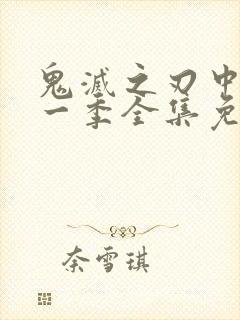 鬼滅之刃中
一季全集免
奈雪琪